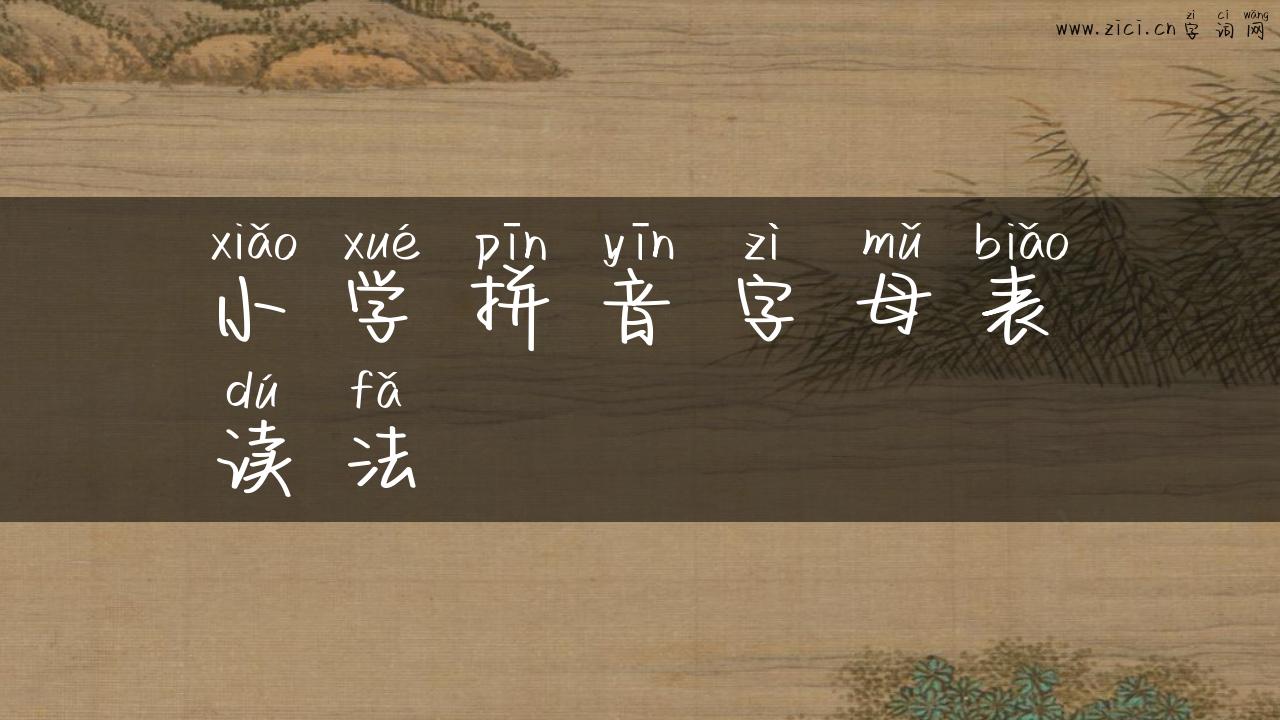 zì cí wǎng
www.zici.cn 字 词 网
xiǎo xué pīn yīn zì mǔ biǎo
小 学 拼 音 字 母 表
dú fǎ
读 法